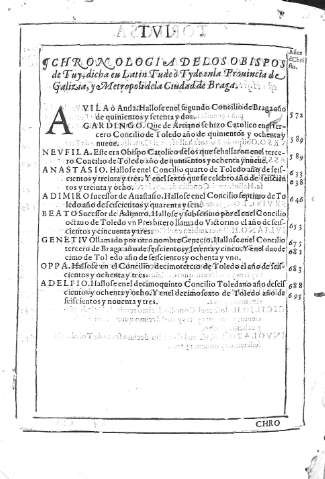 TVI.
¶ CHRONOLOGIA DE LOS OBISPOS
de Tuy, dicha en Latin Tude ò Tyde en la Prouincia de
Galizia, y Metropoli de la Ciudad de Braga.
AVILA ò Anila. Hallose en el segundo Concilio de Braga año
de quinientos y setenta y dos. 572
GARDINGO. Que de Arriano se hizo Catolico en el ter-
cero Concilio de Toledo año de quinientos y ochenta y
nueue. 589
NEVFILA. Este era Obispo Catolico y de los que se hallaron en el terce-
ro Concilio de Toledo año de quinientos y ochenta y nueue. 589
ANASTASIO. Hallose en el Concilio quarto de Toledo año de seis-
cientos y treinta y tres. Y en el sexto que se celebrò año de seiscientos 633
y treinta y ocho. 638
ADIMIRO sucessor de Anastasio. Hallose en el Concilio septimo de To
ledo año de seiscientos y quarenta y seis. 646
BEATO Sucessor de Adimiro. Hallose y subscriuio por el en el Concilio
octauo de Toledo vn Presbitero llamado Victorino el año de seis-
cientos y cincuenta y tres. 653
GENETIVO llamado por otro nombre Genecin. Hallose en el Concilio
tercero de Braga año de seiscientos y setenta y cinco. Y en el duode 675
cimo de Toledo año de seiscientos y ochenta y vno. 681
OPPA. Hallose en el Concilio decimotercio de Toledo el año de seis-
cientos y ochenta y tres. 683
ADELFIO. Hallose en el decimoquinto Concilio Toledano año de seis
cientos y ochenta y ocho. Y en el decimosexto de Toledo año de 688
seiscientos y nouenta y tres. 693
CHRO